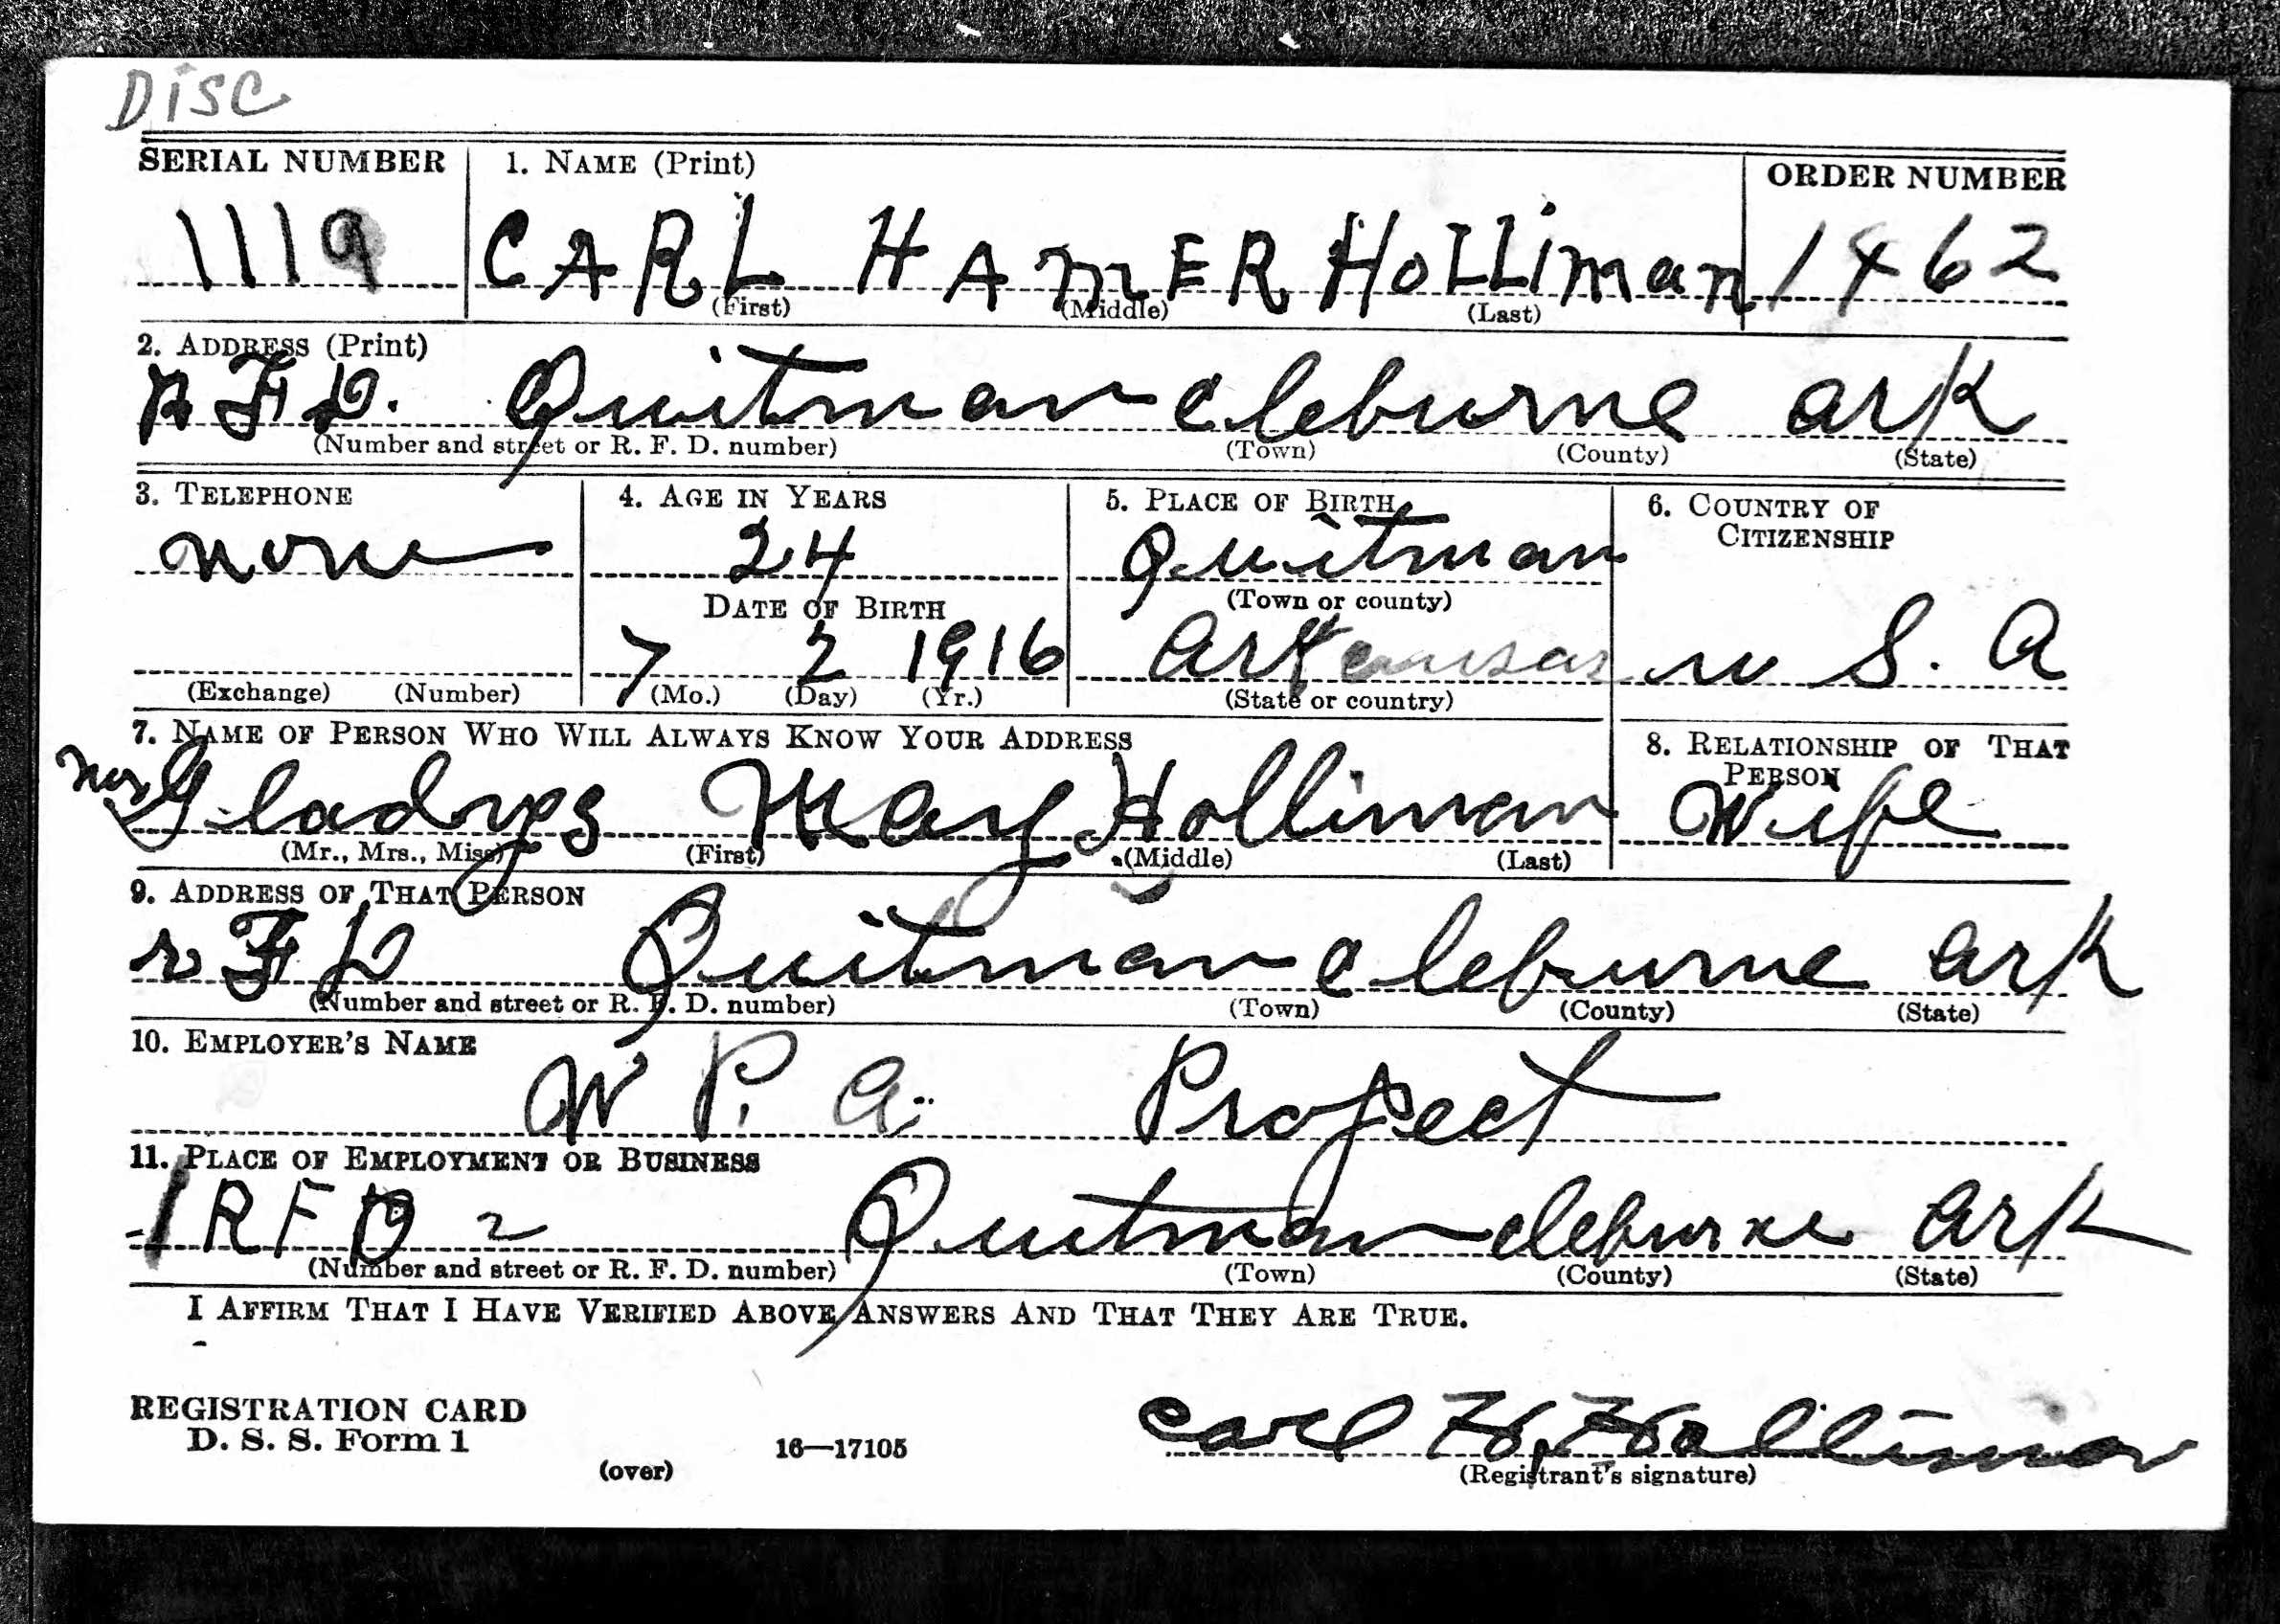 DISC
SERIAL NUMBER 1. NAME (Print) ORDER NUMBER
1119 CARL HAMER HOLLIMAN 1462
(First) (Middle) (Last)
2. ADDRESS (Print)
R F D. Quitman Cleburne Ark
(Number and street or R. F. D. number) (Town) (County) (State)
3. TELEPHONE 4. AGE IN YEARS 5. PLACE OF BIRTH 6. COUNTRY OF CITIZENSHIP
none 24 Quitman
DATE OF BIRTH (Town or county)
7 2 1916 Arkansas U S. A
(Exchange) (Number) (Mo.) (Day) (Yr.) (State or country)
7. NAME OF PERSON WHO WILL ALWAYS KNOW YOUR ADDRESS 8. RELATIONSHIP OF THAT PERSON
Mrs Gladys May Holliman Wife
(Mr., Mrs., Miss) (First) (Middle) (Last)
9. ADDRESS OF THAT PERSON
R F D Quitman Cleburne Ark
(Number and street or R. F. D. number) (Town) (County) (State)
10. EMPLOYER'S NAME
W P. A. Project
11. PLACE OF EMPLOYMENT OR BUSINESS
RFD 2 Quitman Cleburne Ark
(Number and street or R. F. D. number) (Town) (County) (State)
I AFFIRM THAT I HAVE VERIFIED ABOVE ANSWERS AND THAT THEY ARE TRUE.
REGISTRATION CARD
D. S. S. Form 1 16—17105 Carl H. Holliman
(over) (Registrant's signature)